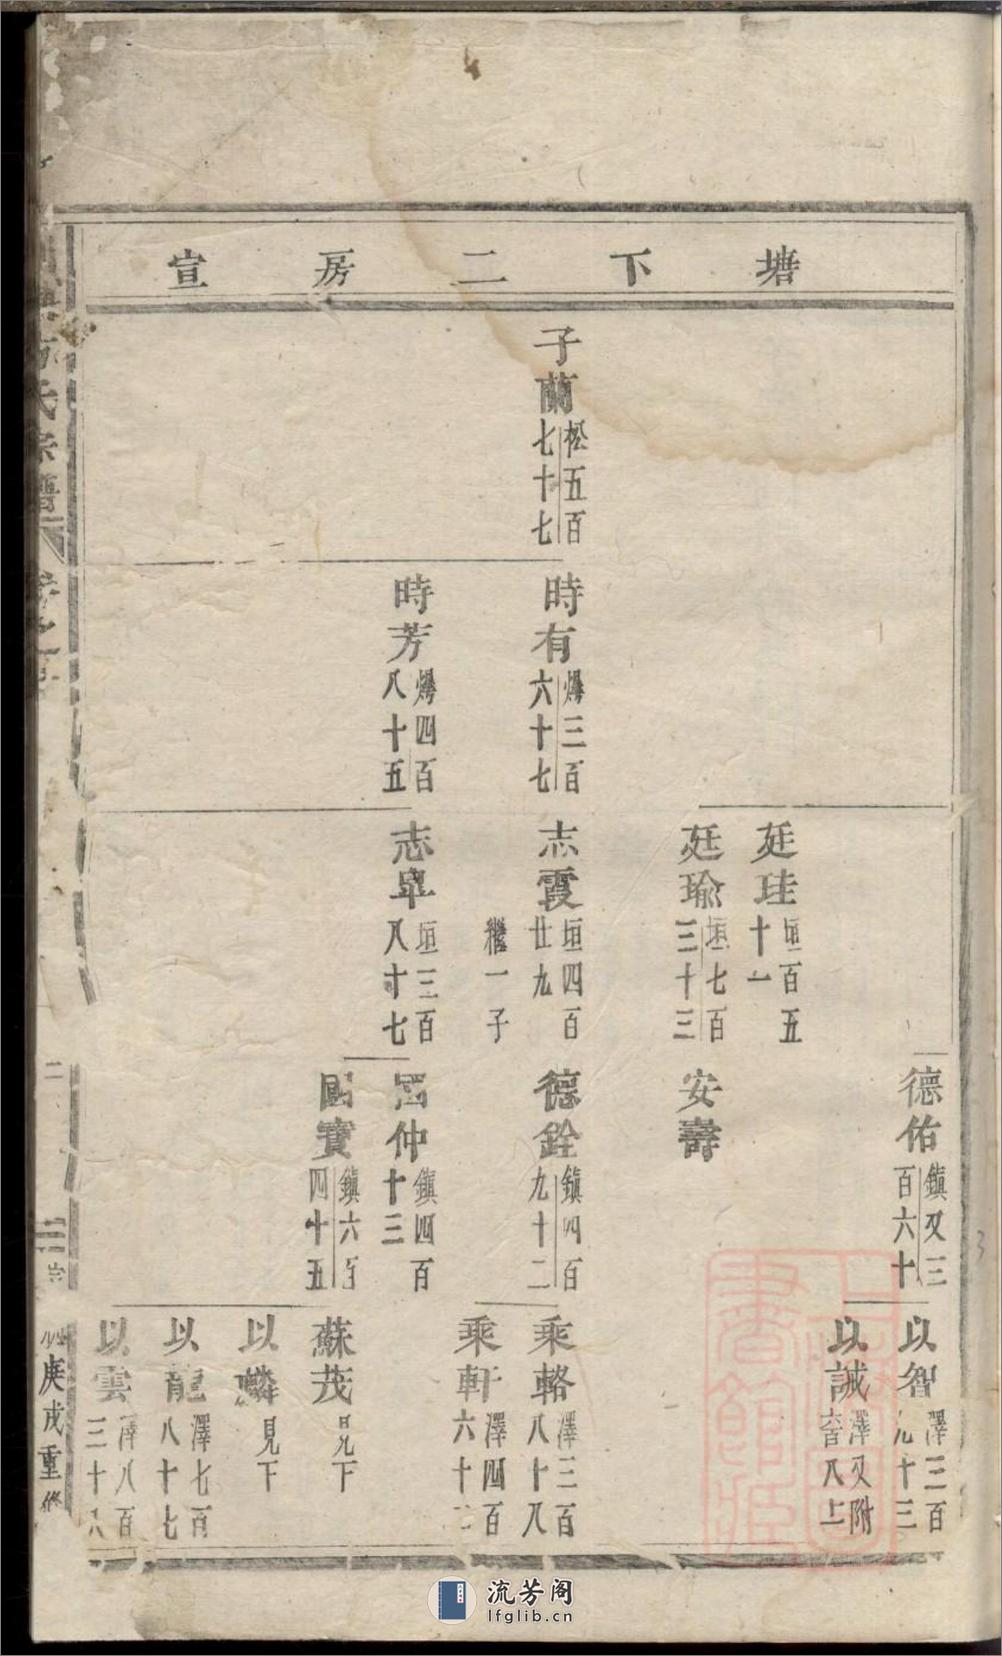 塘下二房宣
子蘭 松五百七十七
時有 爆三百六十七
時芳 爆四百八十五
廷珪 垣百五十一
廷瑜 垣七百三十三
志霞 垣四百廿九
繼一子
志皐 垣三百八十七
德佑 鎮又三百六十
安壽
德銓 鎮四百九十二
國仲 鎮四百十三
國寶 鎮六百四十五
以智 澤三百九十三
以誠 澤又附八上
乘輅 澤三百八十八
乘軒 澤四百六十二
蘇茂 見下
以麟 見下
以龍 澤七百八十七
以雲 澤八百三十八
氏宗譜
庚戌重修
上海圖書館藏
流芳阁
lfglib.cn